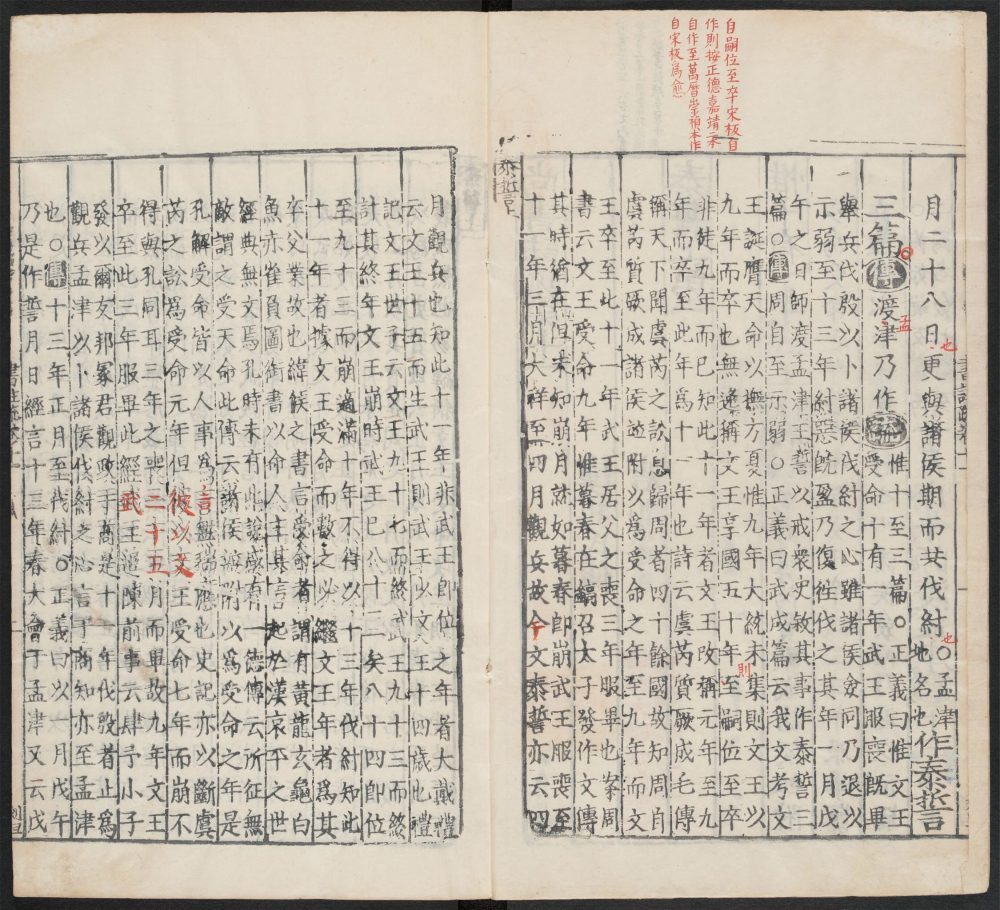 自嗣位至卒宋板自
作則按正德嘉靖本
自作至萬曆崇禎本作
自宋板爲僉
月二十八日更與諸侯期而共伐紂也○孟津地名也作泰誓
三篇傳渡孟津乃作疏惟十至三篇○正義曰惟文王
受命十有一年武王服喪旣畢
舉兵伐殷以卜諸侯伐紂之心雖諸侯僉同乃退以
示弱至十三年紂惡旣盈乃復往伐之其年一月戊
午之日師渡孟津王誓以戒衆史敘其事作泰誓三
篇○傳周自至示弱○正義曰武成篇云我文考文
王誕膺天命以撫方夏惟九年大統未集則文王以
九年而卒也無逸稱文王享國五十年則至嗣位至卒
非徒九年而已知此十一年者文王改稱元年至九
年而卒至此年爲十一年也詩云虞芮質厥成毛傳
稱天下聞虞芮之訟息歸周者四十餘國故知周自
虞芮質厥成諸侯並附以爲受命之年至九年而文
王卒至此十一年武王居父之喪三年服畢也案周
書云文王受命九年惟暮春在鎬召太子發作文傳
其時猶在但未知崩月就如暮春即崩武王服喪至
十一年三月大祥至四月觀兵故今文泰誓亦云四
泰誓上
月觀兵也知此十一年非武王即位之年者大戴禮
云文王十五而生武王則武王少文王十四歲也禮
記文王世子云文王九十七而終武王九十三而終
計其終年文王崩時武王已八十三矣八十四即位
至九十三而崩適滿十年不得以十三年伐紂知此
十一年者據文王受命而數之必繼文王年者爲其
卒父業故也緯候之書言受命者謂有黃龍玄龜白
魚赤雀負圖銜書以命人主其言起於漢哀平之世
經典無文焉孔時未有此說咸有一德傳云所征無
敵謂之受天命此傳云諸侯並附以爲受命之年是
孔解受命皆以人事爲言無瑞應也史記亦以斷虞
芮之訟爲受命元年但彼以文王受命七年而崩不
得與孔同耳三年之喪二十五月而畢故九年文王
卒至此三年服畢此經武王追陳前事云肆予小子
發以爾友邦冢君觀政于商是十一年伐殷者止爲
觀兵孟津以卜諸侯伐紂之心言于商知亦至孟津
也○傳十三年正月至伐紂○正義曰以一月戊午
乃是作誓月日經言十三年春大會于孟津又云戊